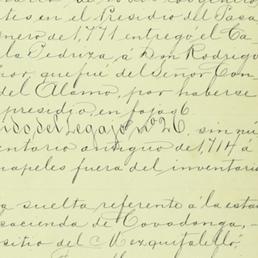 tes en el Presidio del Pasa
nero de 1,771 entregó el Ca
la Pedriza, á Don Rodrigo
ñor, que fué del Señor Con
del Alamo, por haberse
presidio, en fojas 6
ndo del Legajo nº 26. sin
entario antiguo de 1714 á
papeles fuera del inventari
a suelta referente á la esta
acienda de Covadonga,
sitio del Mezquitalillo,